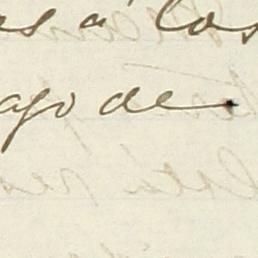 es á los
ago de